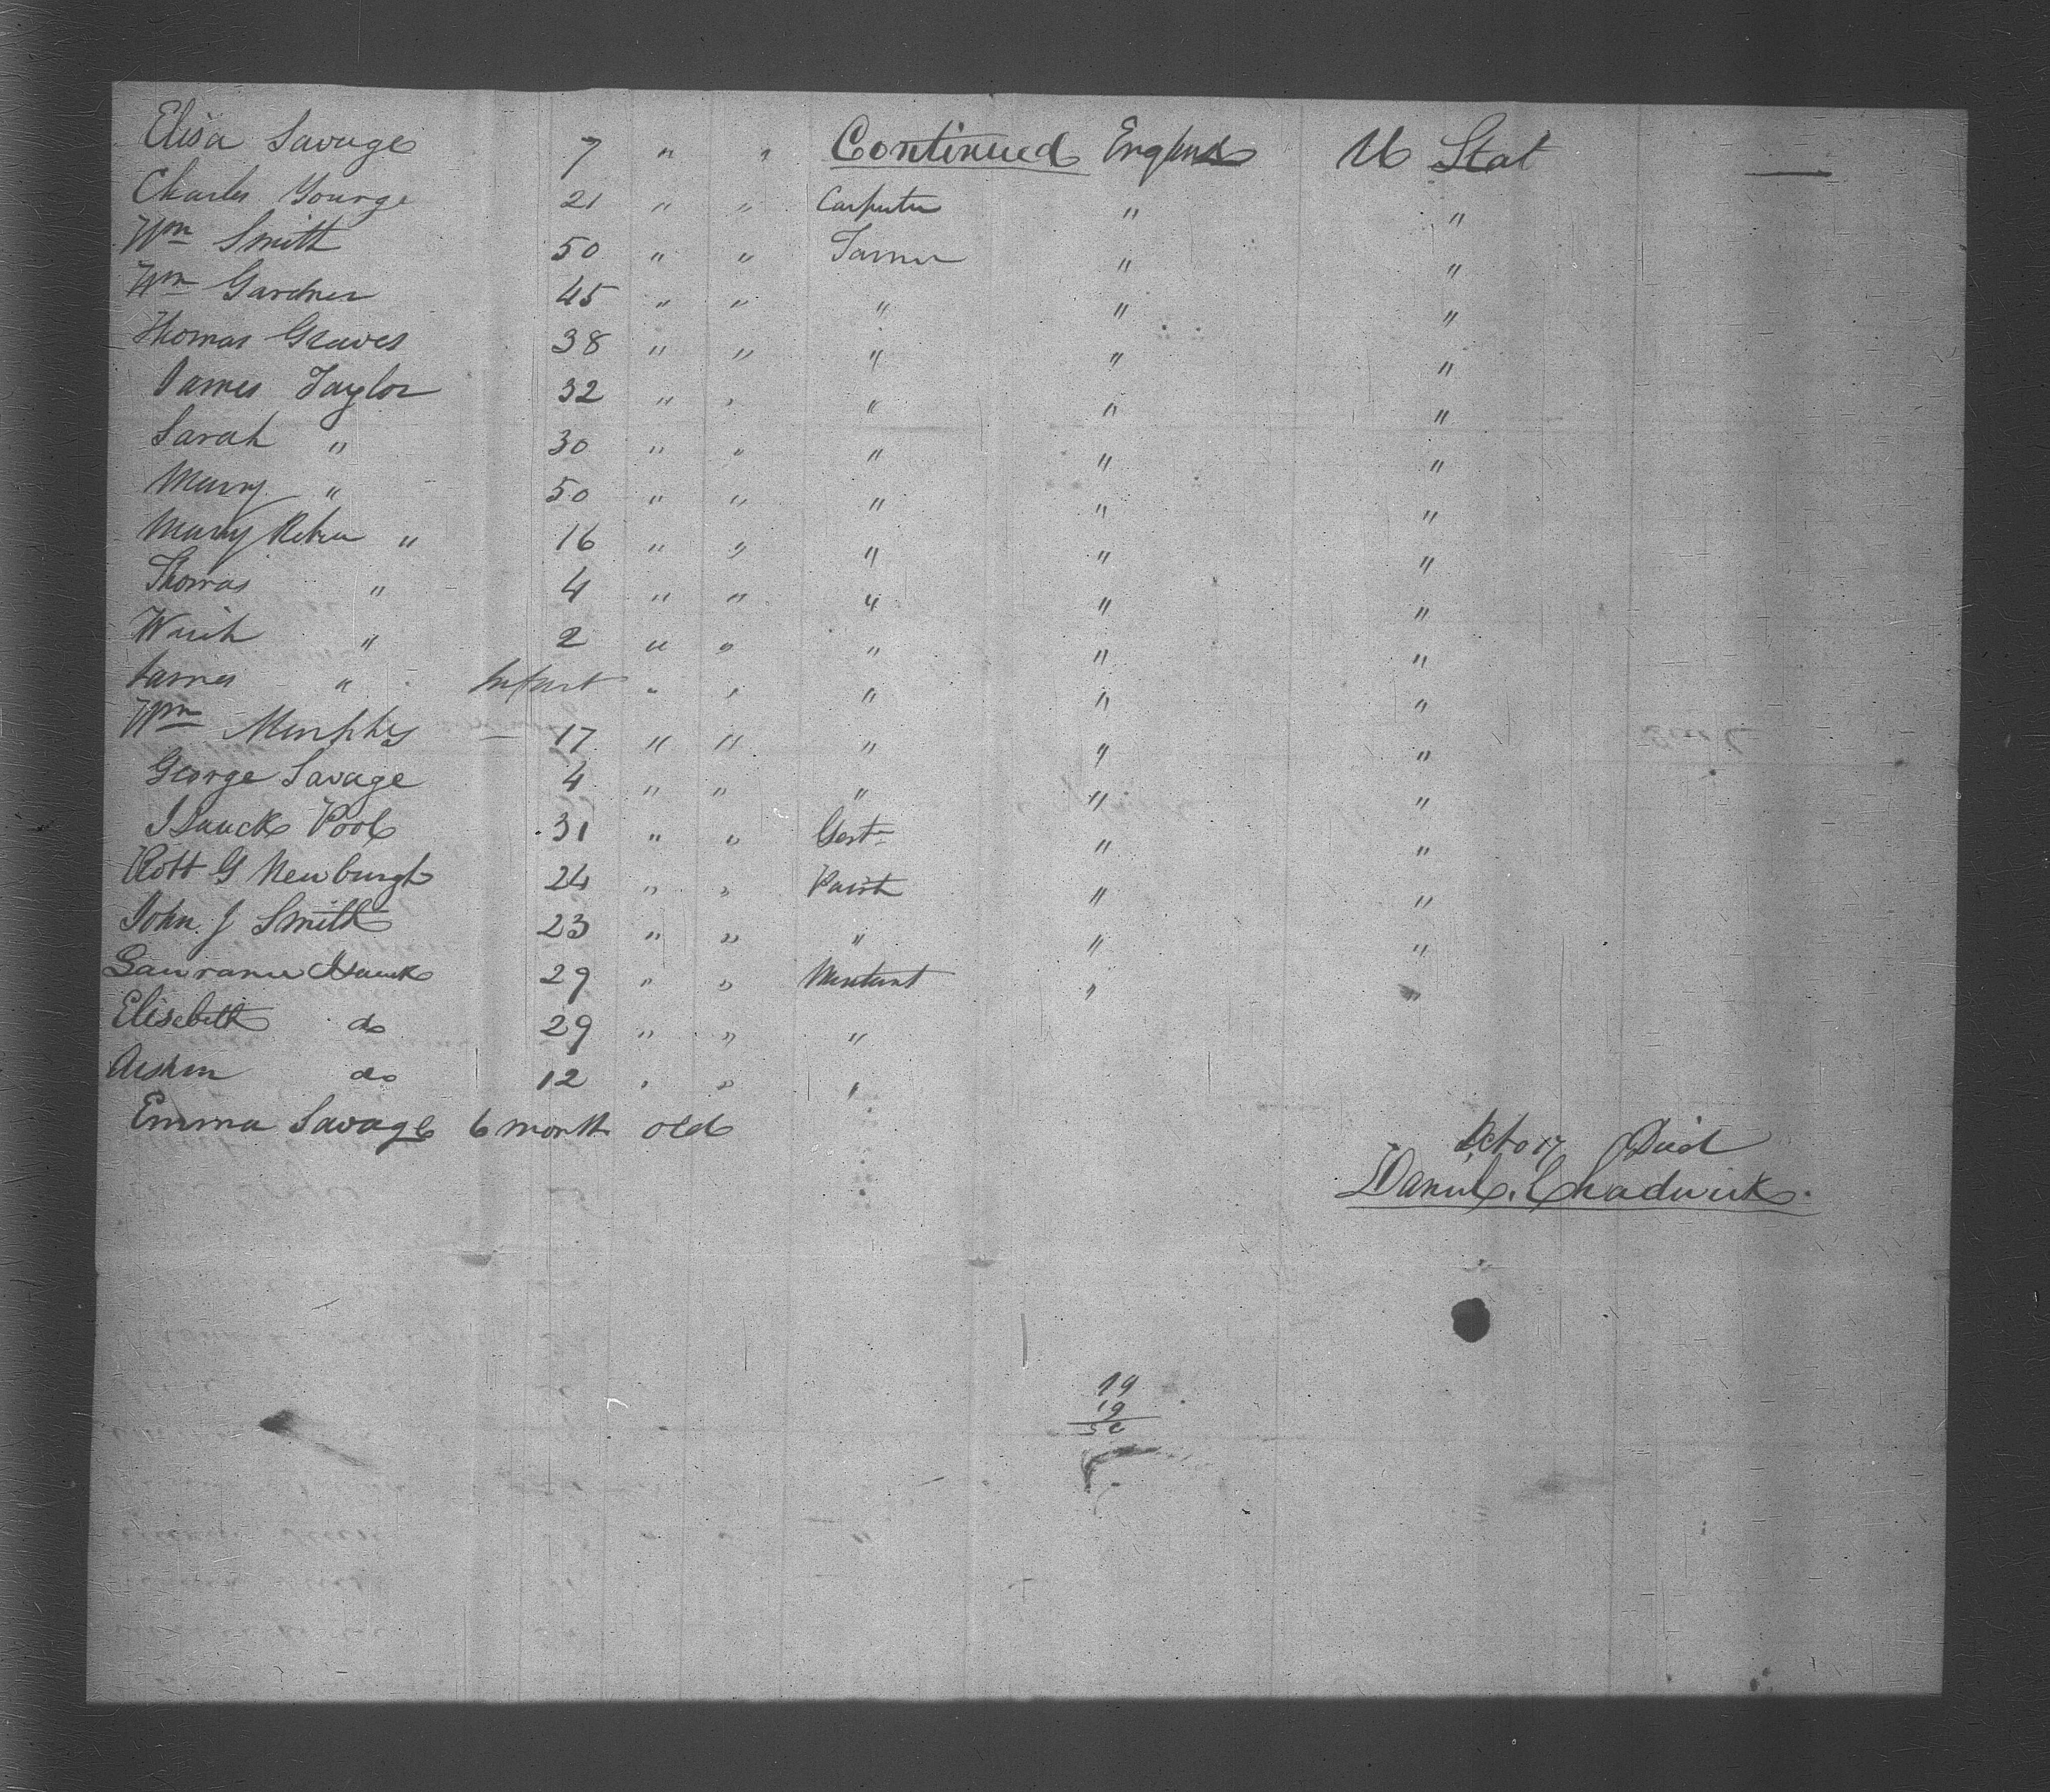 Elisa Savage 7 " " Continued England U Stat —
Charles Younge 21 " " Carpenter " "
Wm Smith 50 " " Farmer " "
Wm Gardner 45 " " " " "
Thomas Graves 38 " " " " "
James Taylor 32 " " " " "
Sarah " 30 " " " " "
Marry " 50 " " " " "
Marry " 16 " " " " "
Thomas " 4 " " " " "
" 2 " " " " "
James " Infant " " " " "
Wm Murphey 17 " " " " "
George Savage 4 " " " " "
Isaack Pool 31 " " " "
Robt G Newburgh 24 " " " "
John. J Smith 23 " " " " "
29 " " " "
Elisebeth do 29 " " "
do 12 " " "
Emma Savage 6 month old Octo 17 Died
Daniel. Chadwick.
19
19